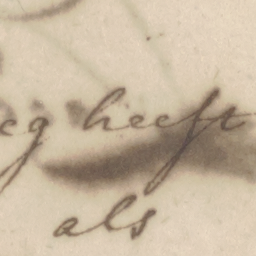 eg heeft
als